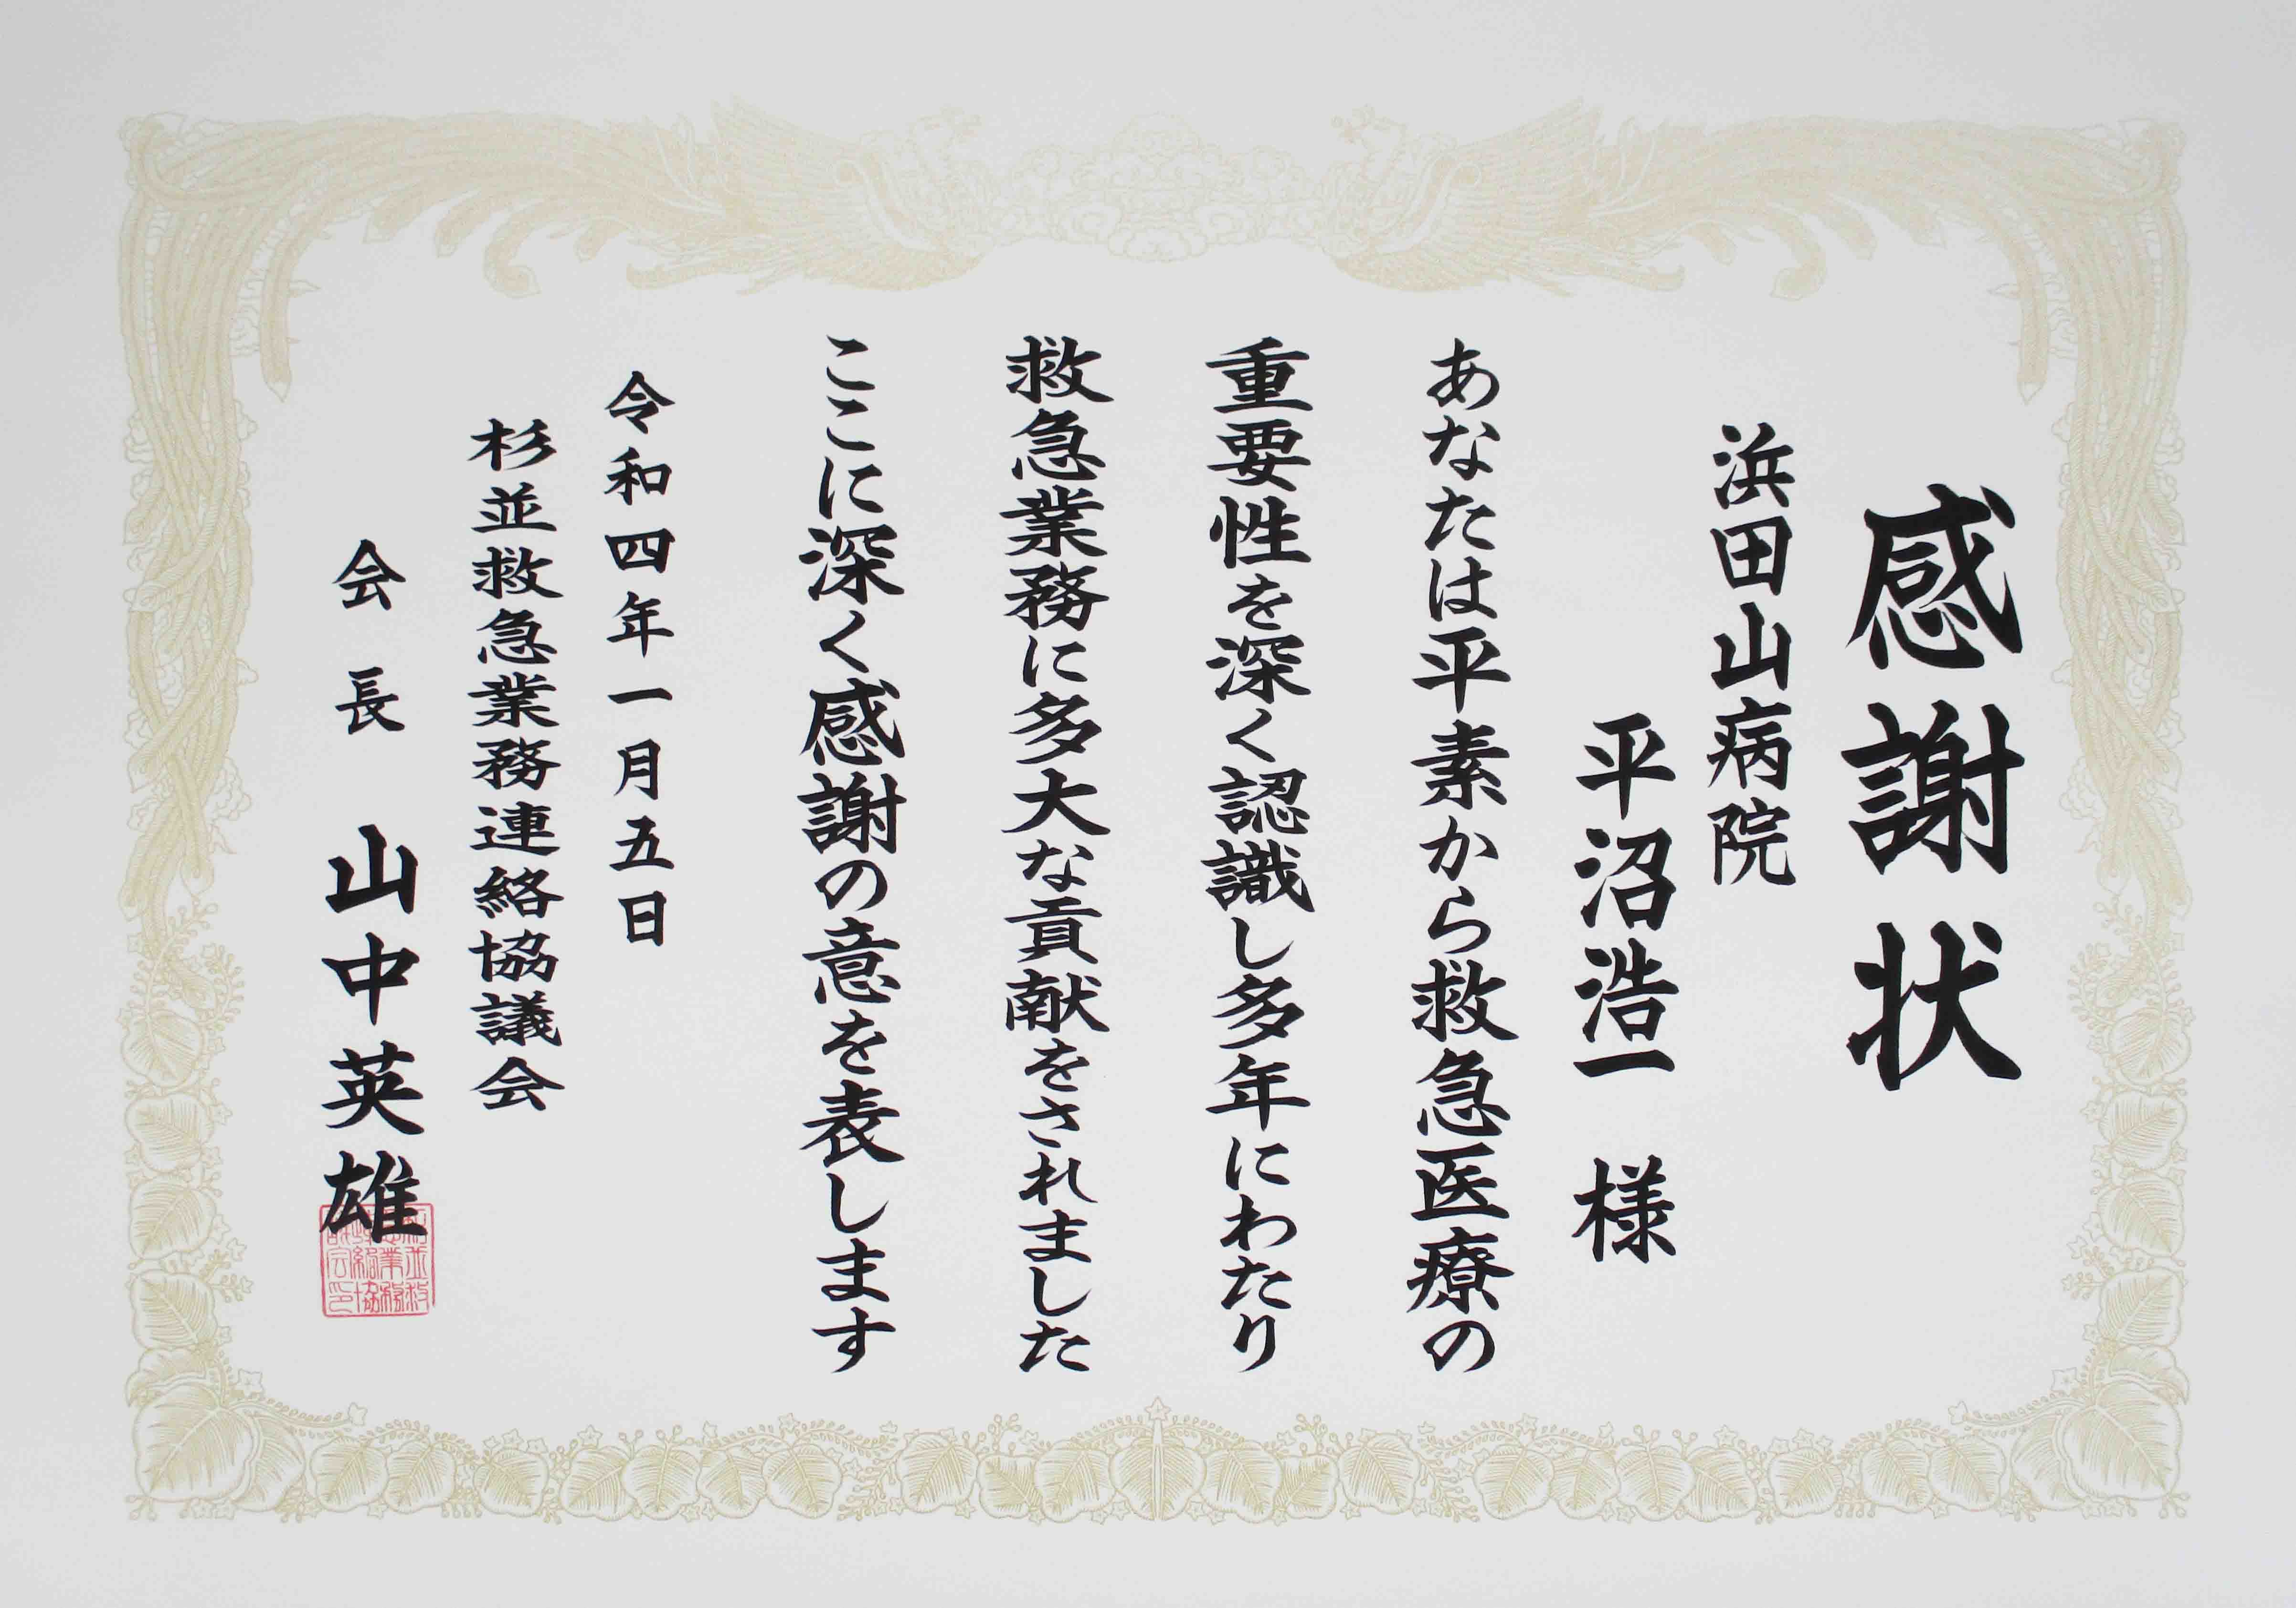 感謝状
浜田山病院
平沼浩一 様
あなたは平素から救急医療の
重要性を深く認識し多年にわたり
救急業務に多大な貢献をされました
ここに深く感謝の意を表します
令和四年一月五日
杉並救急業務連絡協議会
会長 山中英雄